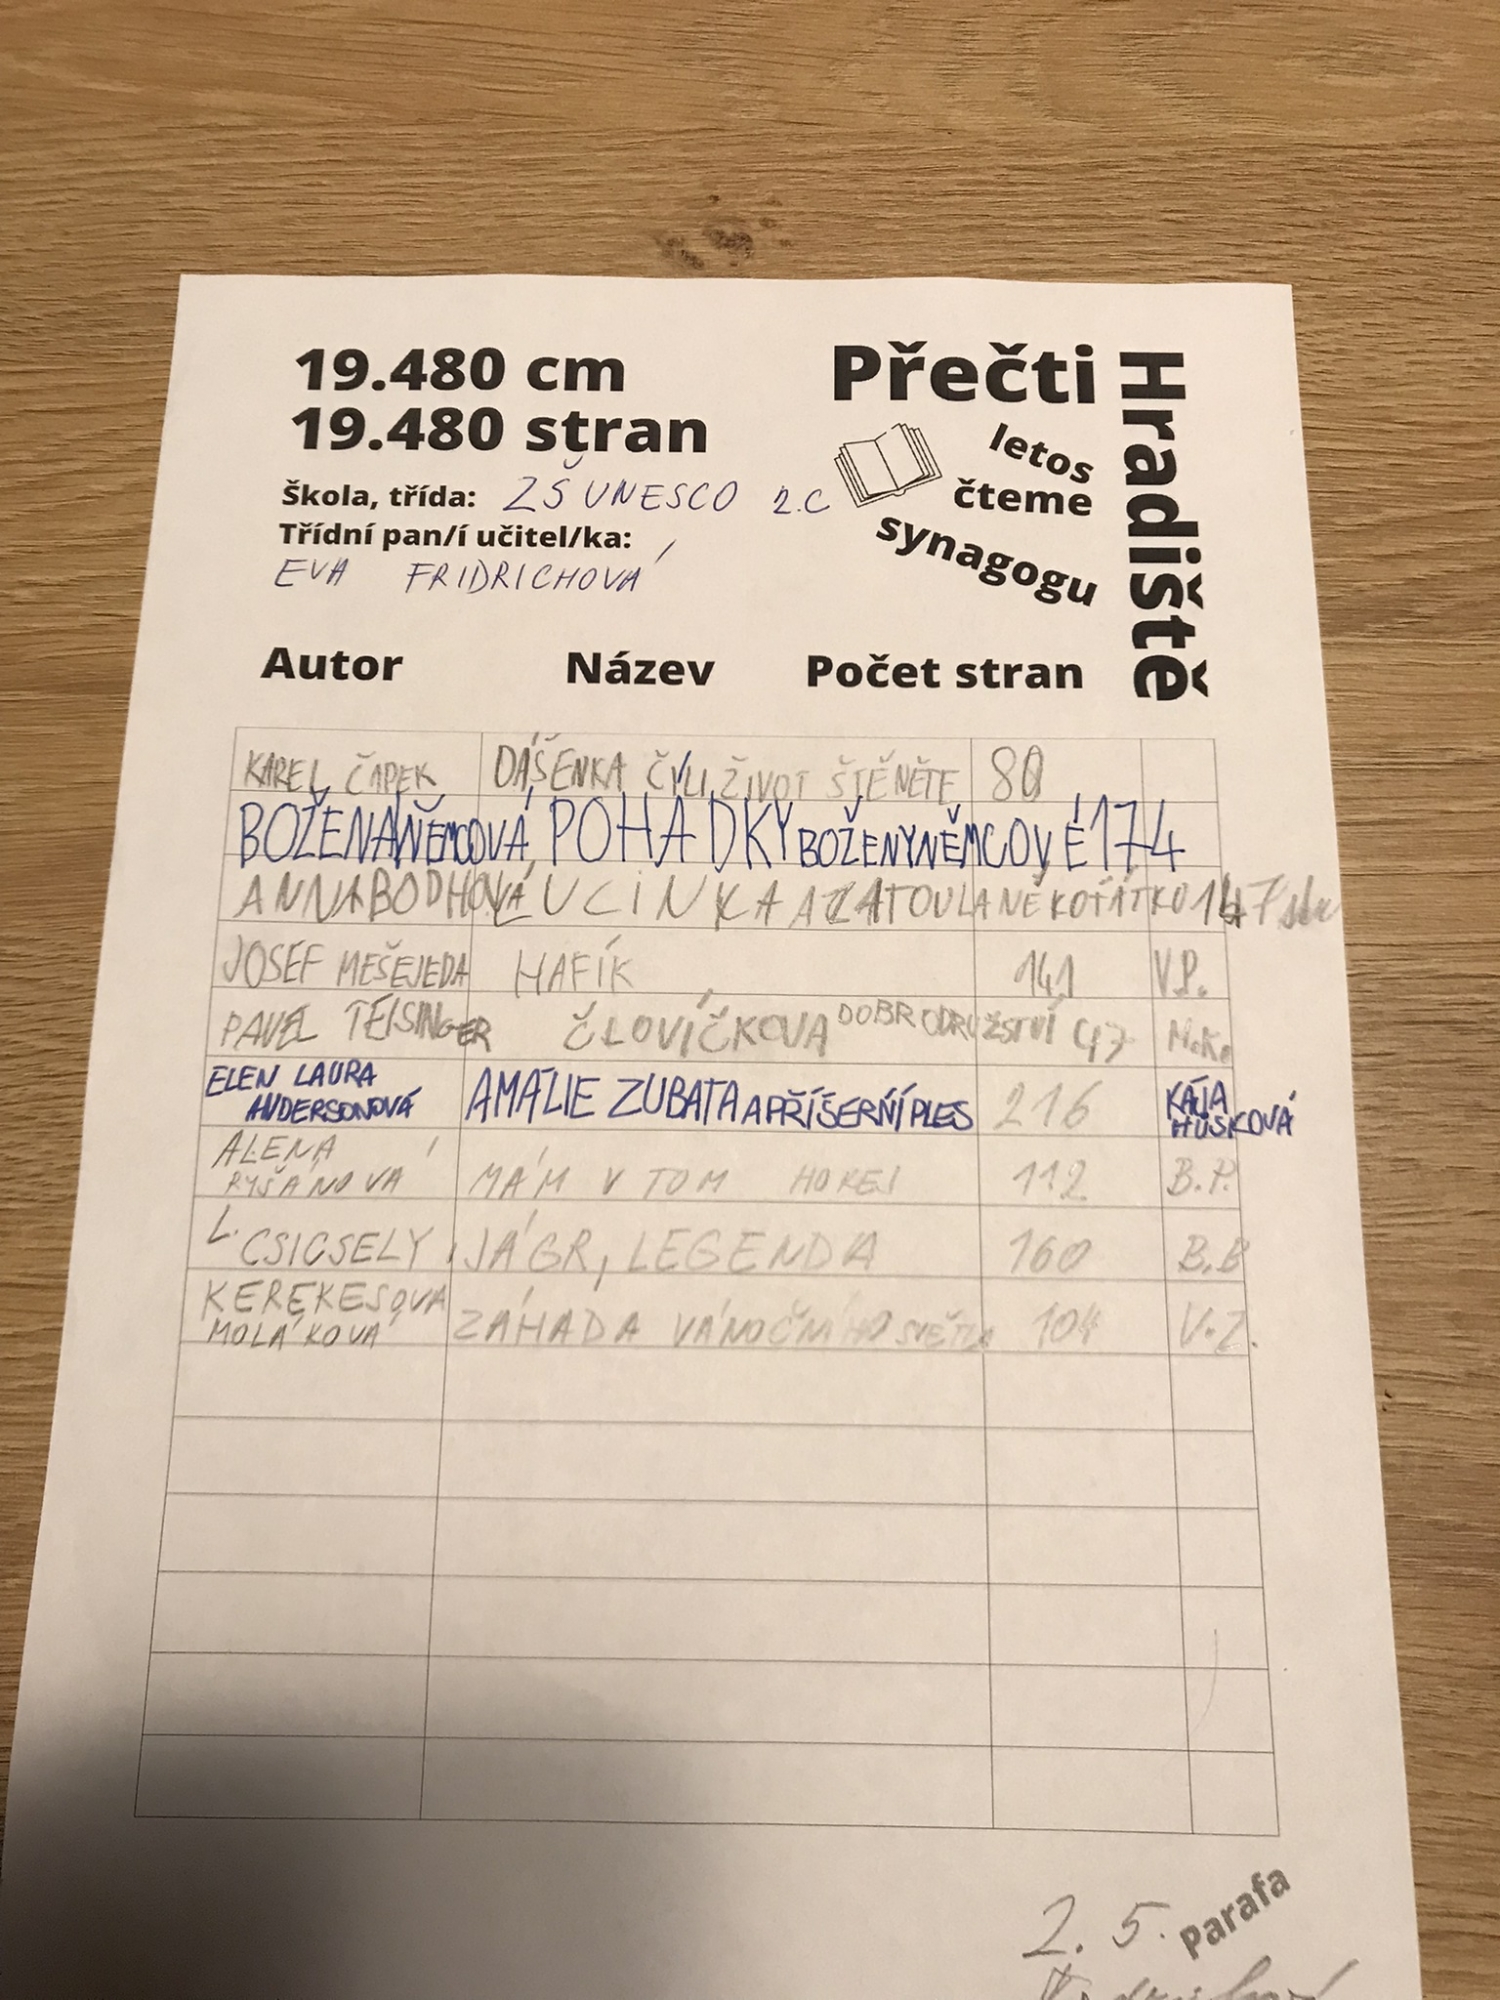 19.480 cm
19.480 stran
Přečti
Hradiště
letos
čteme
synagogu
Škola, třída: ZŠ UNESCO 2.C
Třídní pan/í učitel/ka:
EVA FRIDRICHOVÁ
Autor Název Počet stran
KAREL ČAPEK DÁŠENKA ČILI ŽIVOT ŠTĚNĚTE 80
BOŽENA NĚMCOVÁ POHÁDKY BOŽENY NĚMCOVÉ 174
ANNA BODHOVÁ LUCINKA A ZATOULANÉ KOŤÁTKO 147
JOSEF MEŠEJEDA HAFÍK 141 V.P.
PAVEL TEISINGER ČLOVÍČKOVA DOBRODRUŽSTVÍ 47
ELEN LAURA
ANDERSONOVÁ AMÁLIE ZUBATA A PŘÍŠERŃÍ PLES 216 KÁJA
HUSKOVÁ
ALENA
RYŠÁNOVÁ MÁM V TOM HOKEJ 112 B.P.
L. CSICSELY JÁGR, LEGENDA 160 B.B
KEREKESOVÁ
MOLÁKOVÁ ZÁHADA VÁNOČNÍHO SVĚTLA 104 V.Z.
2. 5. Parafa